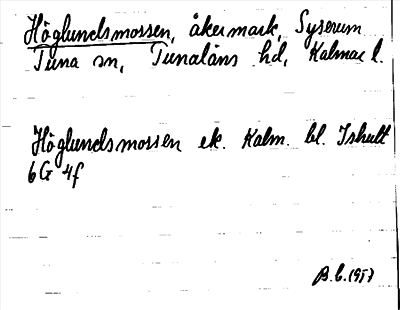 Höglundsmossen, åkermark, Syserum
Tuna sn, Tunaläns hd, Kalmar l.
Höglundsmossen ek. Kalm. bl. Ishult
6G 4f
B.L. 1957